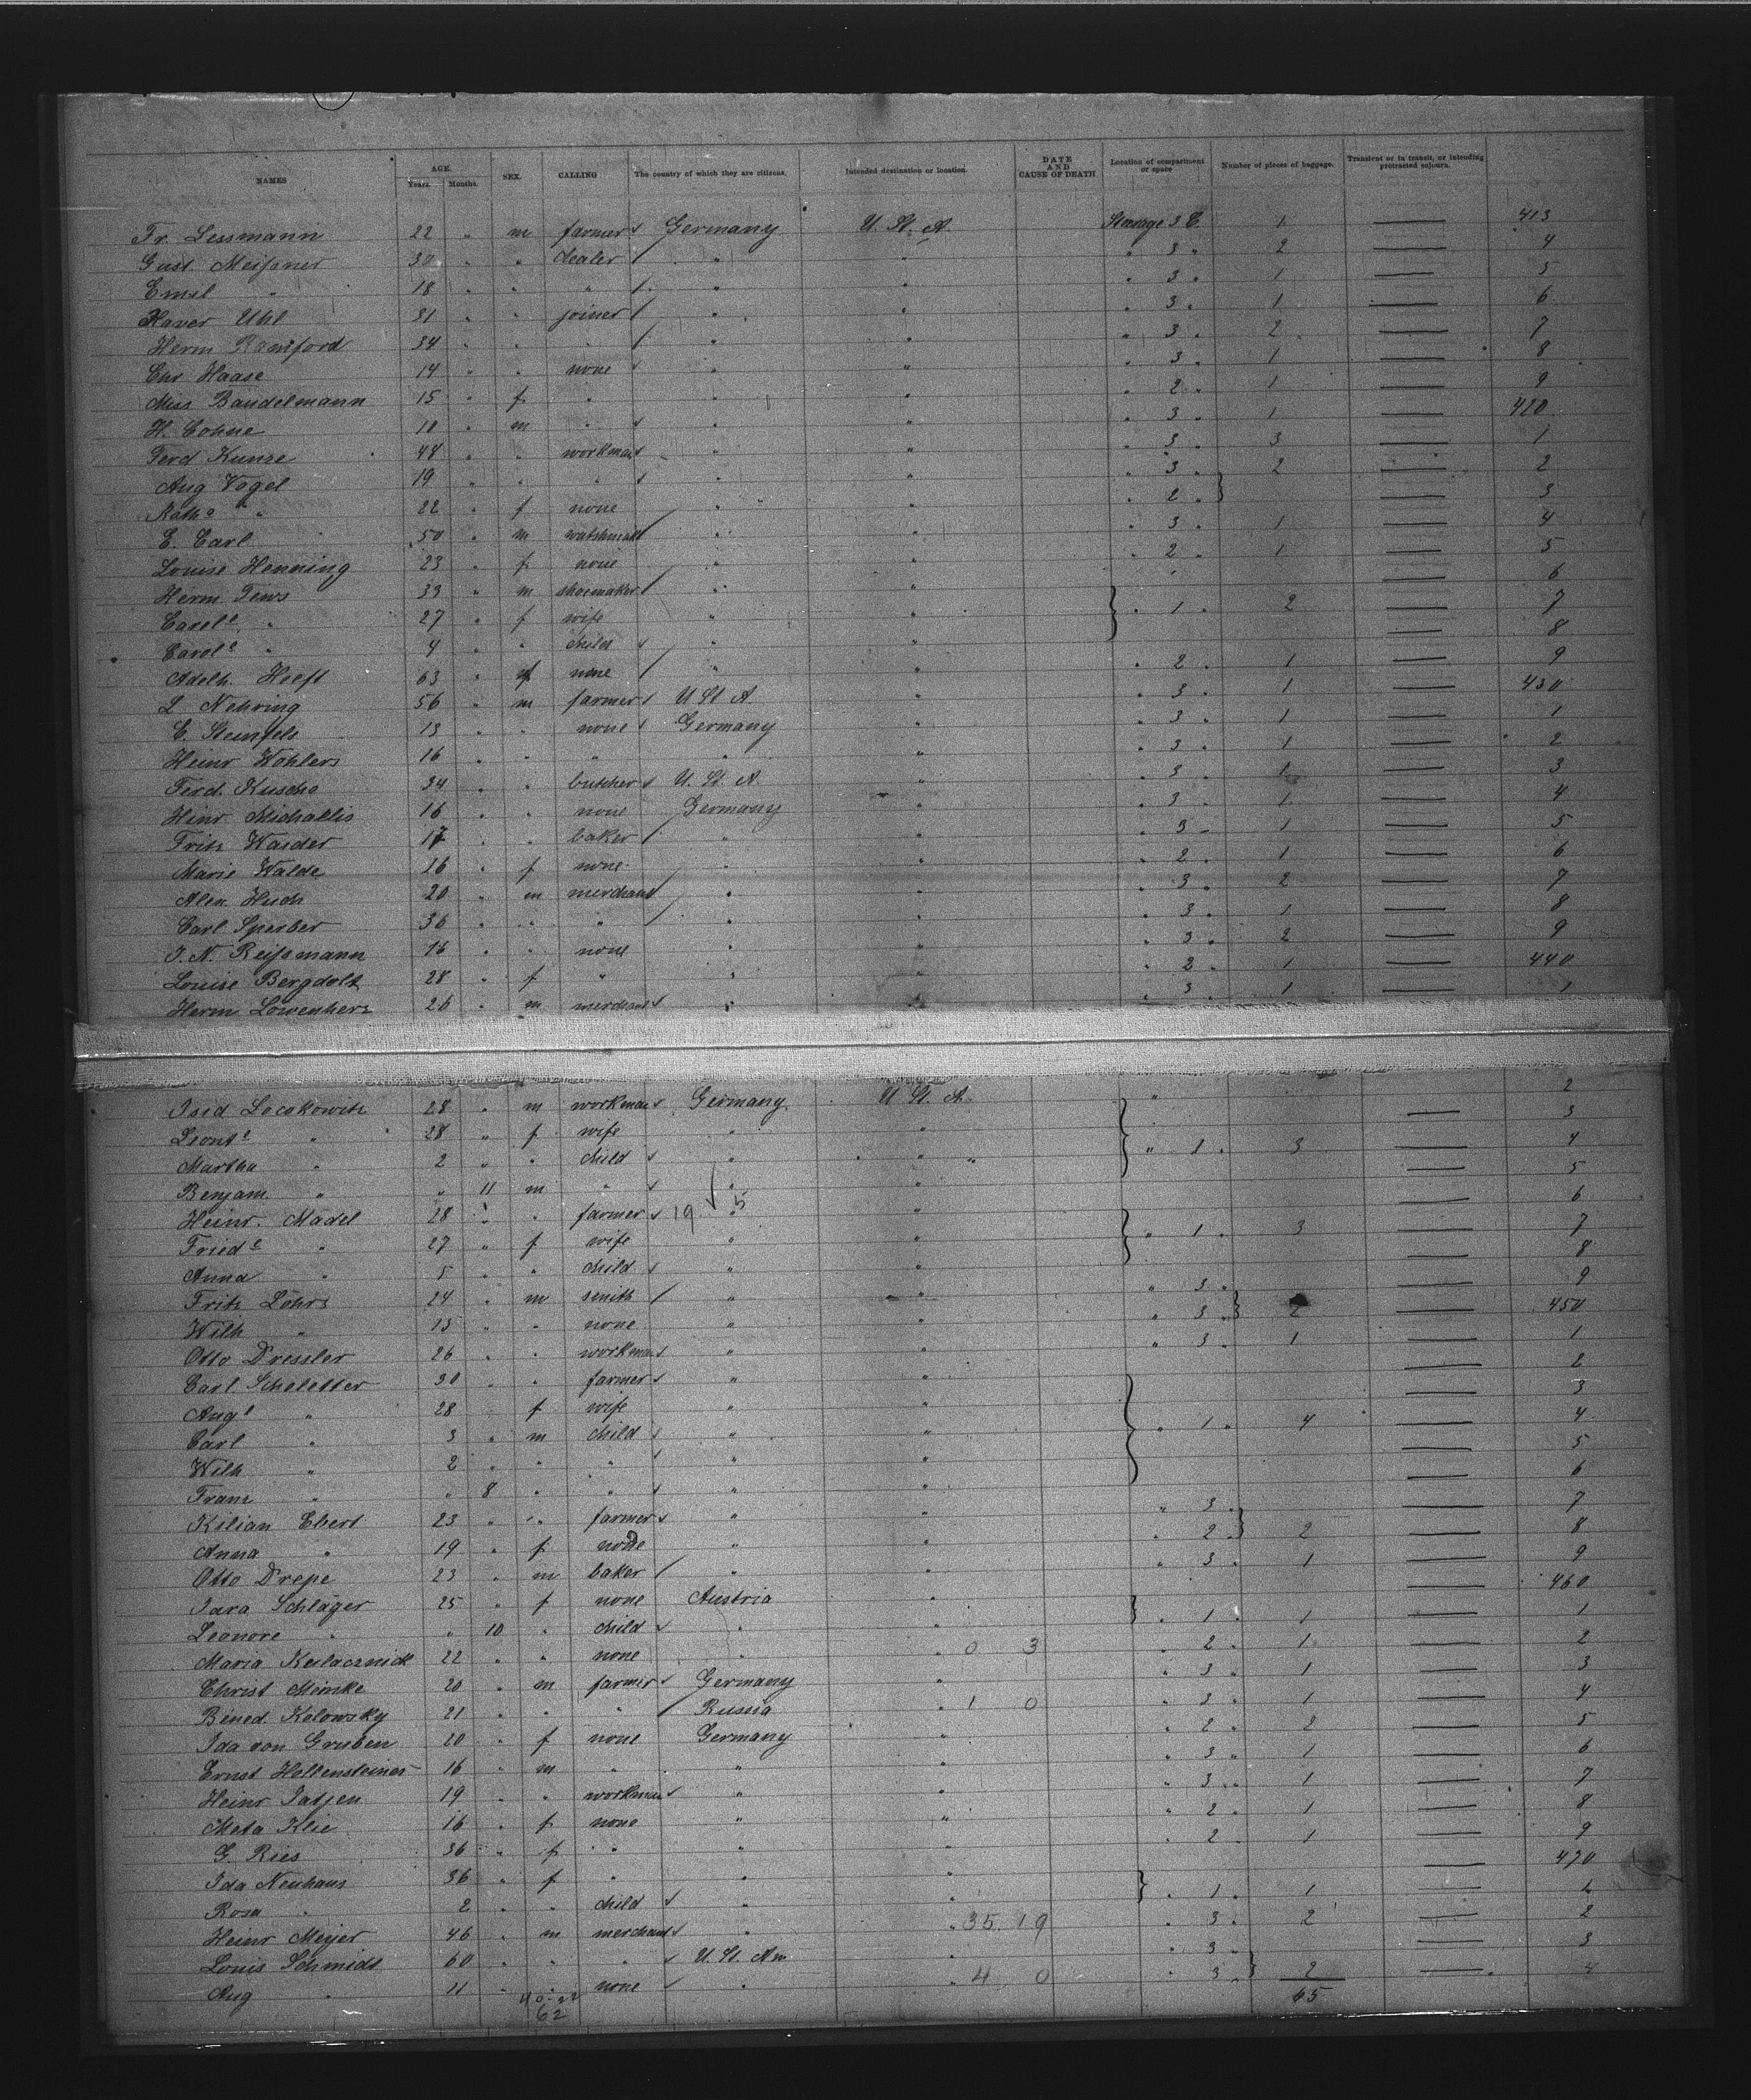 NAMES AGE. Years. Months. SEX. CALLING The country of which they are citizens. Intended destination or location. DATE AND CAUSE OF DEATH Location of compartment or space Number of pieces of baggage. Transient or in transit, or intending protracted sojourn.
Fr. Lessmann 22 " m farmer Germany U. St. A. Steerage 3 C. 1 — 413
Gust. Meissner 30 " " dealer " " " 3 " 2 — 4
Emil " 18 " " " " " " 3 " 1 — 5
Xaver Uhl 31 " " joiner " " " 3 " 1 — 6
Herm 34 " " " " " " 3 " 2 — 7
Chr Haase 14 " " none " " " 3 " 1 — 8
Miss Bandelmann 15 " f " " " " 2 " 1 — 9
H. Cohne 18 " m " " " " 3 " 1 — 420
Ferd Kunze 48 " " workman " " " 3 " 3 — 1
Aug Vogel 19 " " " " " " 3 " 2 — 2
Kath " 22 " f none " " " 2 " — 3
E. Carl 50 " m watchmak " " " 3 " 1 — 4
Louise Henning 23 " f none " " " 2 " 1 — 5
Herm Tews 33 " m shoemaker " " — 6
Carol " 27 " f wife " " " 1 " 2 — 7
Carol " 4 " " child " " — 8
Adelh. Heeft 63 " f none " " " 2 " 1 — 9
L Nehring 56 " m farmer U St A " " 3 " 1 — 430
E. Steinfels 13 " " none Germany " " 3 " 1 — 1
Heinr Wohlers 16 " " " " " " 3 " 1 — 2
Ferd. Kusche 34 " " butcher U. St. A " " 3 " 1 — 3
Hinr Michaelis 16 " " none Germany " " 3 " 1 — 4
Fritz Warder 17 " " baker " " " 3 " 1 — 5
Marie Walde 16 " f none " " " 2 " 1 — 6
Alex. Huch 20 " m merchant " " " 3 " 2 — 7
Carl Sperber 36 " " " " " " 3 " 1 — 8
J. N. Reissmann 16 " " none " " " 3 " 2 — 9
Louise Bergdolt 28 " f " " " " 2 " 1 — 440
Herm Löwenherz 26 " m merchant " " " 3 " 1 — 1
Isid Locokowitz 28 " m workman Germany U St. A. " 2
Leont " 28 " f wife " " — 3
Martha " 2 " " child " " " 1 " 3 — 4
Benjam. " " 11 m " " " — 5
Heinr. Mädel 28 " " farmer 19 5 " — 6
Fried " 27 " f wife " " " 1 " 3 — 7
Anna " 5 " " child " " — 8
Fritz Löhrs 24 " m smith " " " 3 " — 9
Wilh " 13 " " none " " " 3 " 2 — 450
Otto Dressler 26 " " workman " " " 3 " 1 — 1
Carl Scheletter 30 " " farmer " " — 2
Aug " 28 f wife " " — 3
Carl " 3 " m child " " " 1 " 4 — 4
Wilh " 2 " " " " " — 5
Franz " " 8 " " " " — 6
Kilian Ebert 23 " " farmer " " " 3 " — 7
Anna " 19 " f none " " " 2 " 2 — 8
Otto Drepe 23 " m baker " " " 3 " 1 — 9
Schläger 25 " f none Austria " — 460
Leonore " " 10 " child " " 1 " 1 — 1
Maria 22 " " none " " 0 3 " 2 " 1 — 2
Christ Mimke 20 " m farmer Germany " " 3 " 1 — 3
Bened. Kolowsky 21 " " " Russia " 1 0 " 3 " 1 — 4
Ida von Gruben 20 " f none Germany " " 2 " 2 — 5
Ernst Hollensteiner 16 " m " " " " 3 " 1 — 6
Heinr Tatjen 19 " " workman " " " 3 " 1 — 7
Meta Klie 16 " f none " " " 2 " 1 — 8
G. Ries 36 " f " " " " 2 " 1 — 9
Ida Neuhaus 36 " f " " " — 470
Rosa " 2 " " child " " " 1 " 1 — 1
Heinr Meyer 46 " m merchant " " 35 19 " 3 " 2 — 2
Louis Schmidt 60 " " " U. St. Am " " 3 " — 3
Aug " 11 " none " " 4 0 " 3 " 2 — 4
40 22
62 65